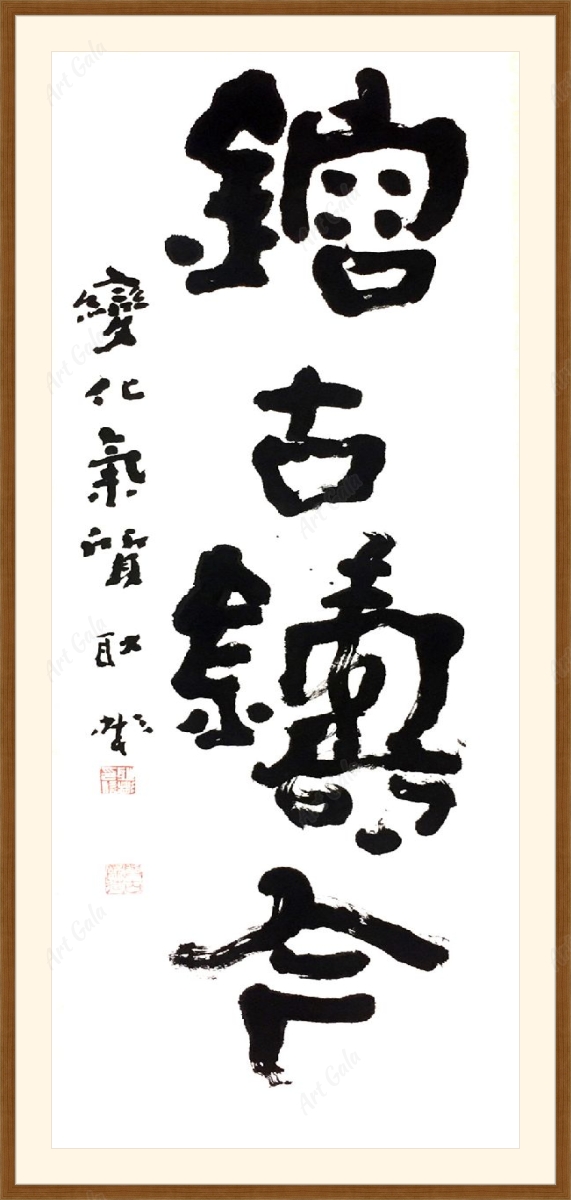 鎔古鑄今
變化氣質
Art Gala